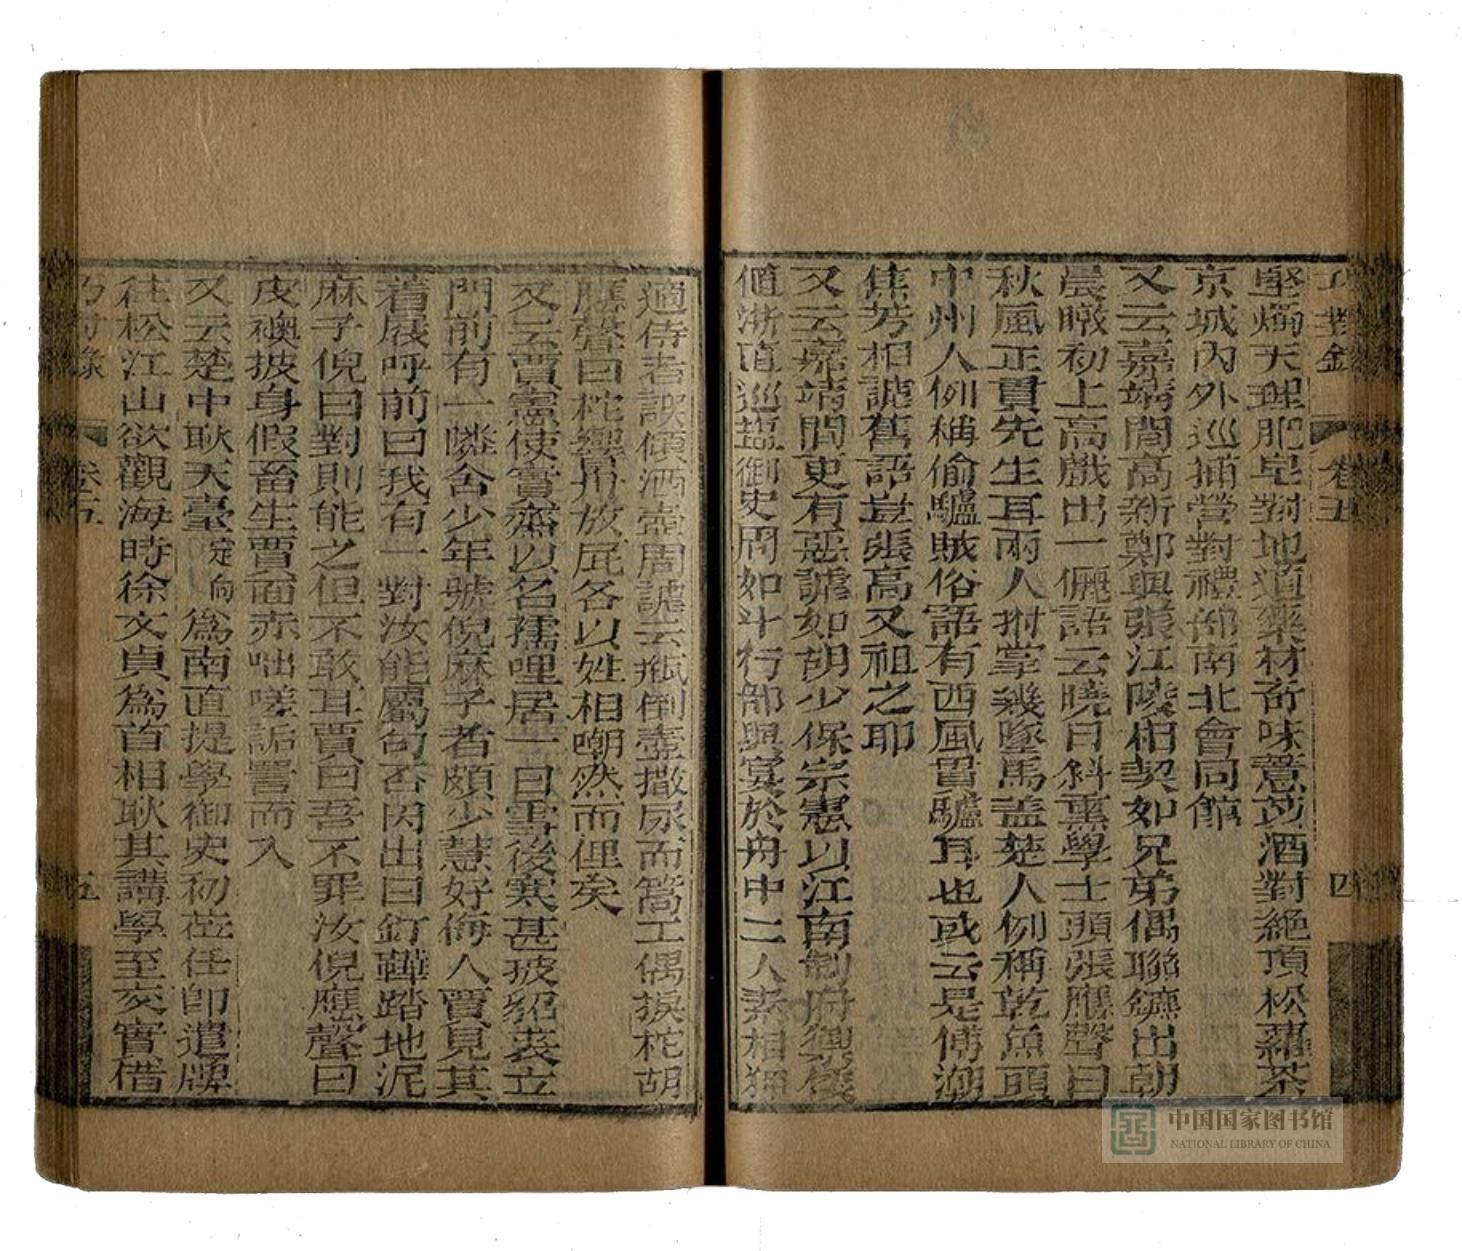 巧對錄 卷五 四
堅燭天理肥皂對地道藥材奇味薏苡酒對絕頂松蘿茶
京城內外巡捕營對禮部南北會同館
又云嘉靖間高新鄭與張江陵相契如兄弟偶聯鑣出朝
晨暾初上高戲出一儷語云曉日斜熏學士頭張應聲曰
秋風正貫先生耳兩人拊掌幾墜馬盖楚人例稱乾魚頭
中州人例稱偷驢賊俗語有西風貫驢耳也或云是傅潮
焦芳相謔舊語豈張高又祖之耶
又云嘉靖間更有惡謔如胡少保宗憲以江南制府御倭
值浙直巡盬御史周如斗行部與宴於舟中二人素相狎
適侍者誤傾酒壺周謔云瓶倒壺撒尿而篙工偶捩柁胡
應聲曰柁響舟放屁各以姓相嘲然而俚矣
又云賈憲使實齋以名孺哩居一日雪後寒甚披貂裘立
門前有一隣舍少年號倪麻子者頗少慧好侮人賈見其
着屐呼前曰我有一對汝能屬句否因出曰釘鞾踏地泥
麻子倪曰對則能之但不敢耳賈曰吾不罪汝倪應聲曰
皮襖披身假畜生賈面赤咄嗟詬詈而入
又云楚中耿天臺定向為南直提學御史初蒞任卽遣牌
往松江山欲觀海時徐文貞為首相耿其講學至交實借
巧對錄 卷五 五
中国国家图书馆
NATIONAL LIBRARY OF CHINA